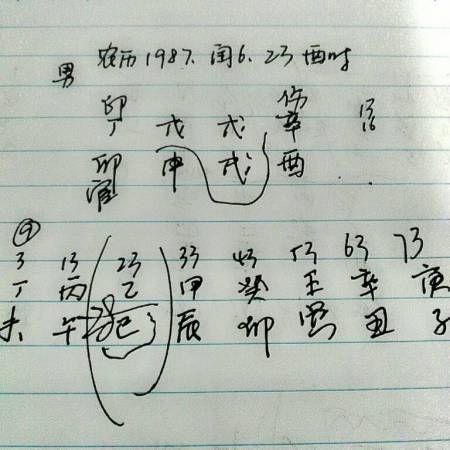 男 农历1987.闰6.23酉时
卩 伤
丁 戊 戊 辛
卯 申 戌 酉
官
3 13 23 33 43 53 63 73
丁 丙 乙 甲 癸 壬 辛 庚
未 午 28 巳 辰 卯 寅 丑 子